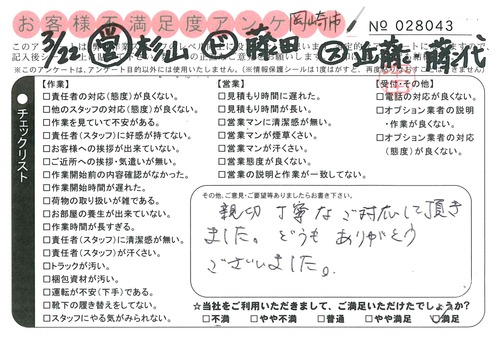 お客様不満足度アンケ
岡崎市
№ 028043
3/22 営 杉山 ㋛ 藤田 ㋘ 近藤 蘭代
※このアンケートは、アンケート目的以外には使用いたしません。(※情報保護シールは1度はがすと、再度
チェックリスト
【作業】
□責任者の対応(態度)が良くない。
□他のスタッフの対応(態度)が良くない。
□作業を見ていて不安がある。
□責任者(スタッフ)に好感が持てない。
□お客様への挨拶が出来ていない。
□ご近所への挨拶・気遣いが無い。
□作業開始前の内容確認がなかった。
□作業開始時間が遅れた。
□荷物の取り扱いが雑である。
□お部屋の養生が出来ていない。
□作業時間が長すぎる。
□責任者(スタッフ)に清潔感が無い。
□責任者(スタッフ)が汗くさい。
□トラックが汚い。
□梱包資材が汚い。
□運転が不安(下手)である。
□靴下の履き替えをしてない。
□スタッフにやる気がみられない。
【営業】
□見積もり時間に遅れた。
□見積もり時間が長い。
□営業マンに清潔感が無い。
□営業マンが煙草くさい。
□営業マンが汗くさい。
□営業態度が良くない。
□営業の説明と作業が一致してない。
【受付・その他】
□電話の対応が良くない。
□オプション業者の説明
・作業が良くない。
□オプション業者の対応
(態度)が良くない。
その他、ご意見・ご要望等ありましたらお書き下さい。
親切 丁寧な ご対応して頂き
ました。どうも ありがとう
ございました。
☆当社をご利用いただきまして、ご満足いただけたでしょうか?
□不満 □やや不満 □普通 □やや満足 □満足